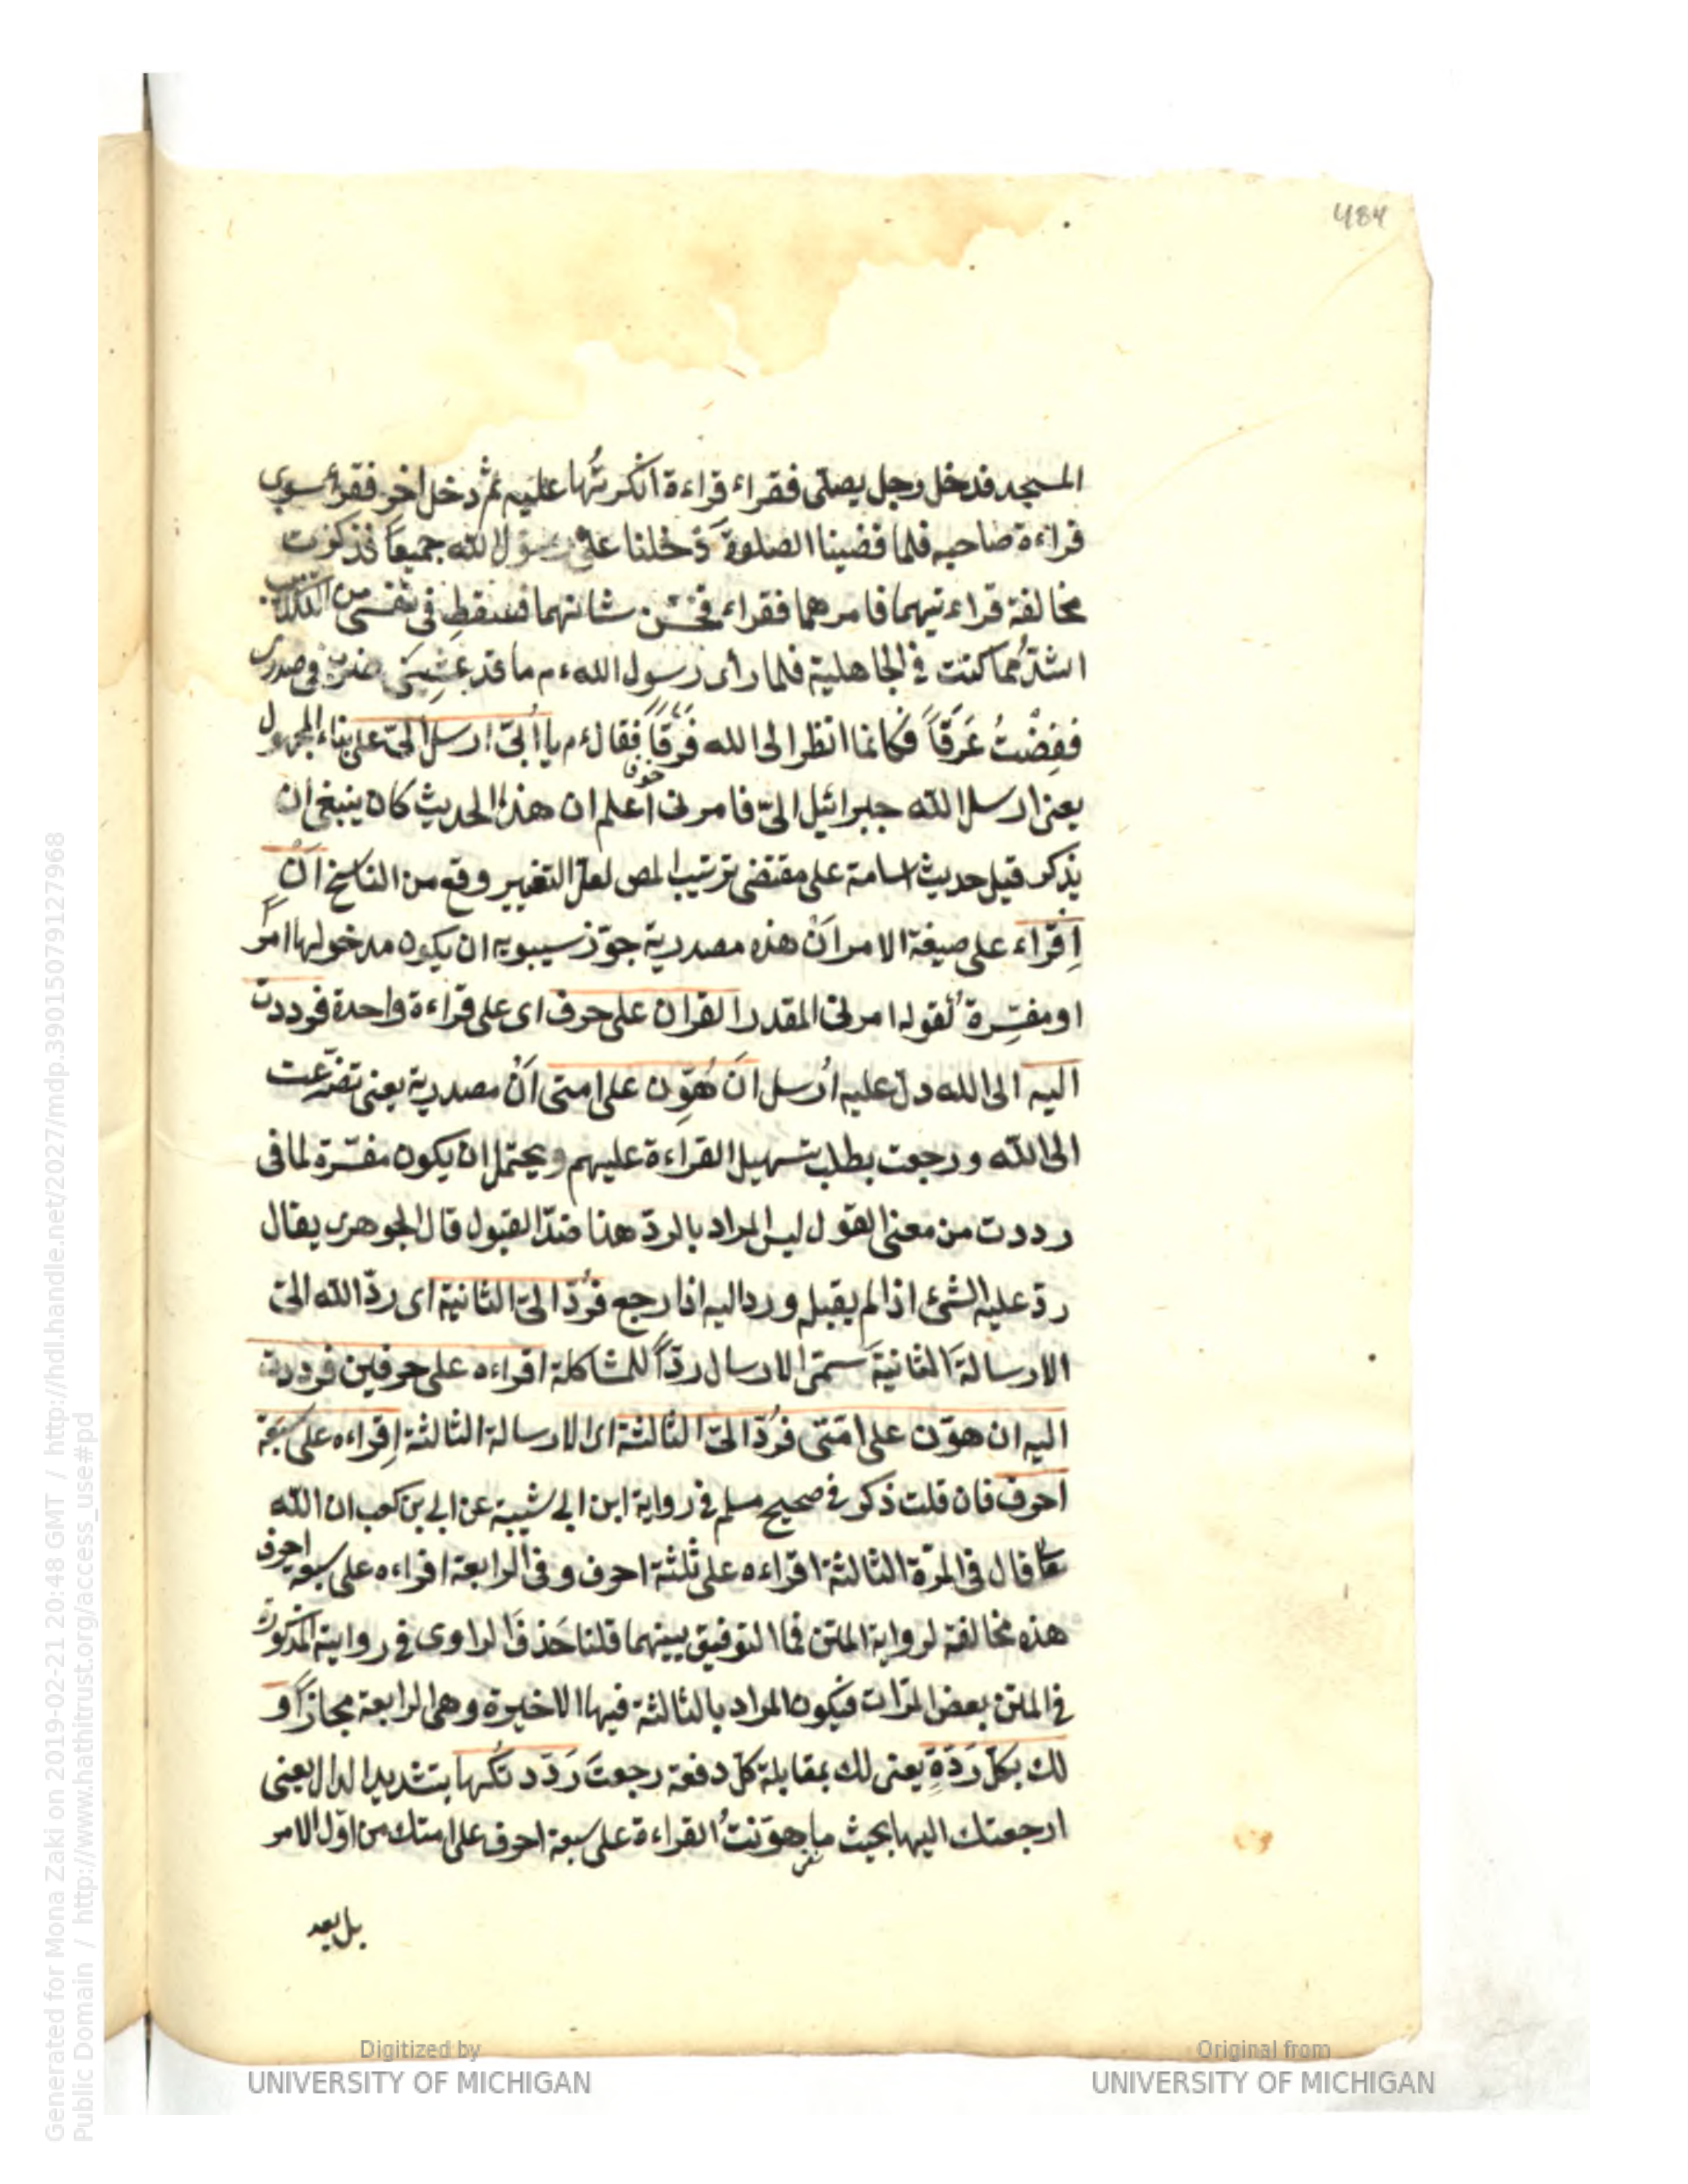 484
المسجد فدخل رجل يصلى فقراء قراءة انكرتُها عليه ثم دخل اخر فقرأ سوى
قراءة صاحبه فلما قضينا الصلوة دخلنا على رسول الله جميعا فذكرت
مخالفة قراءتيهما فامرهما فقراء فحسّن شانهما فسقط فى نفسى من التكذيب
اشدّ مما كنت فى الجاهلية فلما رأى رسول الله ءم ما قد غشِيَنى ضرب فى صدرى
ففِضْتُ عَرَقاً فكانما انظر الى الله فَرَقاً فقال ءم يا اُبىّ ارسل الىّ على بناء المجهول
خوف
يعنى ارسل الله جبرائيل الىّ فامرنى اعلم ان هذا الحديث كان ينبغى ان
يذكر قبل حديث اسامة على مقتضى ترتيب المص لعل التغيير وقع من الناسخ اَنْ
اِقراء على صيغة الامر اَنْ هذه مصدرية جوّز سيبويه ان يكون مدخولها امرًا
او مفسِّرة لقوله امرنى المقدر القران على حرف اى على قراءة واحدة فرددت
اليه الى الله دل عليه اُرسل اَنْ هَوِّن على امتى اَنْ مصدرية يعنى تضرّعت
الى الله ورجعت بطلب تسهيل القراءة عليهم ويحتمل ان يكون مفسّرة لما فى
رددت من معنى القول ليس المراد بالردّ هنا ضدّ القبول قال الجوهرى يقال
ردّ عليه الشئ اذا لم يقبله وردّ اليه اذا رجع فرُدّ الىّ الثانية اى ردّ الله الىّ
الارسالة الثانية سمّى الارسال ردّاً للمشاكلة اقراءه على حرفين فرددت
اليه ان هوّن على امّتى فرُدّ الىّ الثالثة اى الارسالة الثالثة اِقراءه على سبعة
احرف فان قلت ذكر فى صحيح مسلم فى رواية ابن ابى شيبة عن ابى بن كعب ان الله
تعا قال فى المرّة الثالثة اقراءه على ثلثة احرف وفى الرابعة اقراءه على سبعة احرف
هذه مخالفة لرواية المتن فما التوفيق بينهما قلنا حَذفَ الراوى فى روايته المذكورة
فى المتن بعض المرّات فيكون المراد بالثالثة فيها الاخيرة وهى الرابعة مجازاً و
لك بكلّ رَدّةٍ يعنى لك بمقابلة كلّ دفعة رجعتَ رَدّدتُكها بتشديد الدال يعنى
ارجعتك اليها بحيث ما هوّنتُ القراءة على سبعة احرف على امتك من اوّل الامر
بل بعد
Generated for Mona Zaki on 2019-02-21 20:48 GMT / http://hdl.handle.net/2027/mdp.39015079127968
Public Domain / http://www.hathitrust.org/access_use#pd
Digitized by
UNIVERSITY OF MICHIGAN
Original from
UNIVERSITY OF MICHIGAN